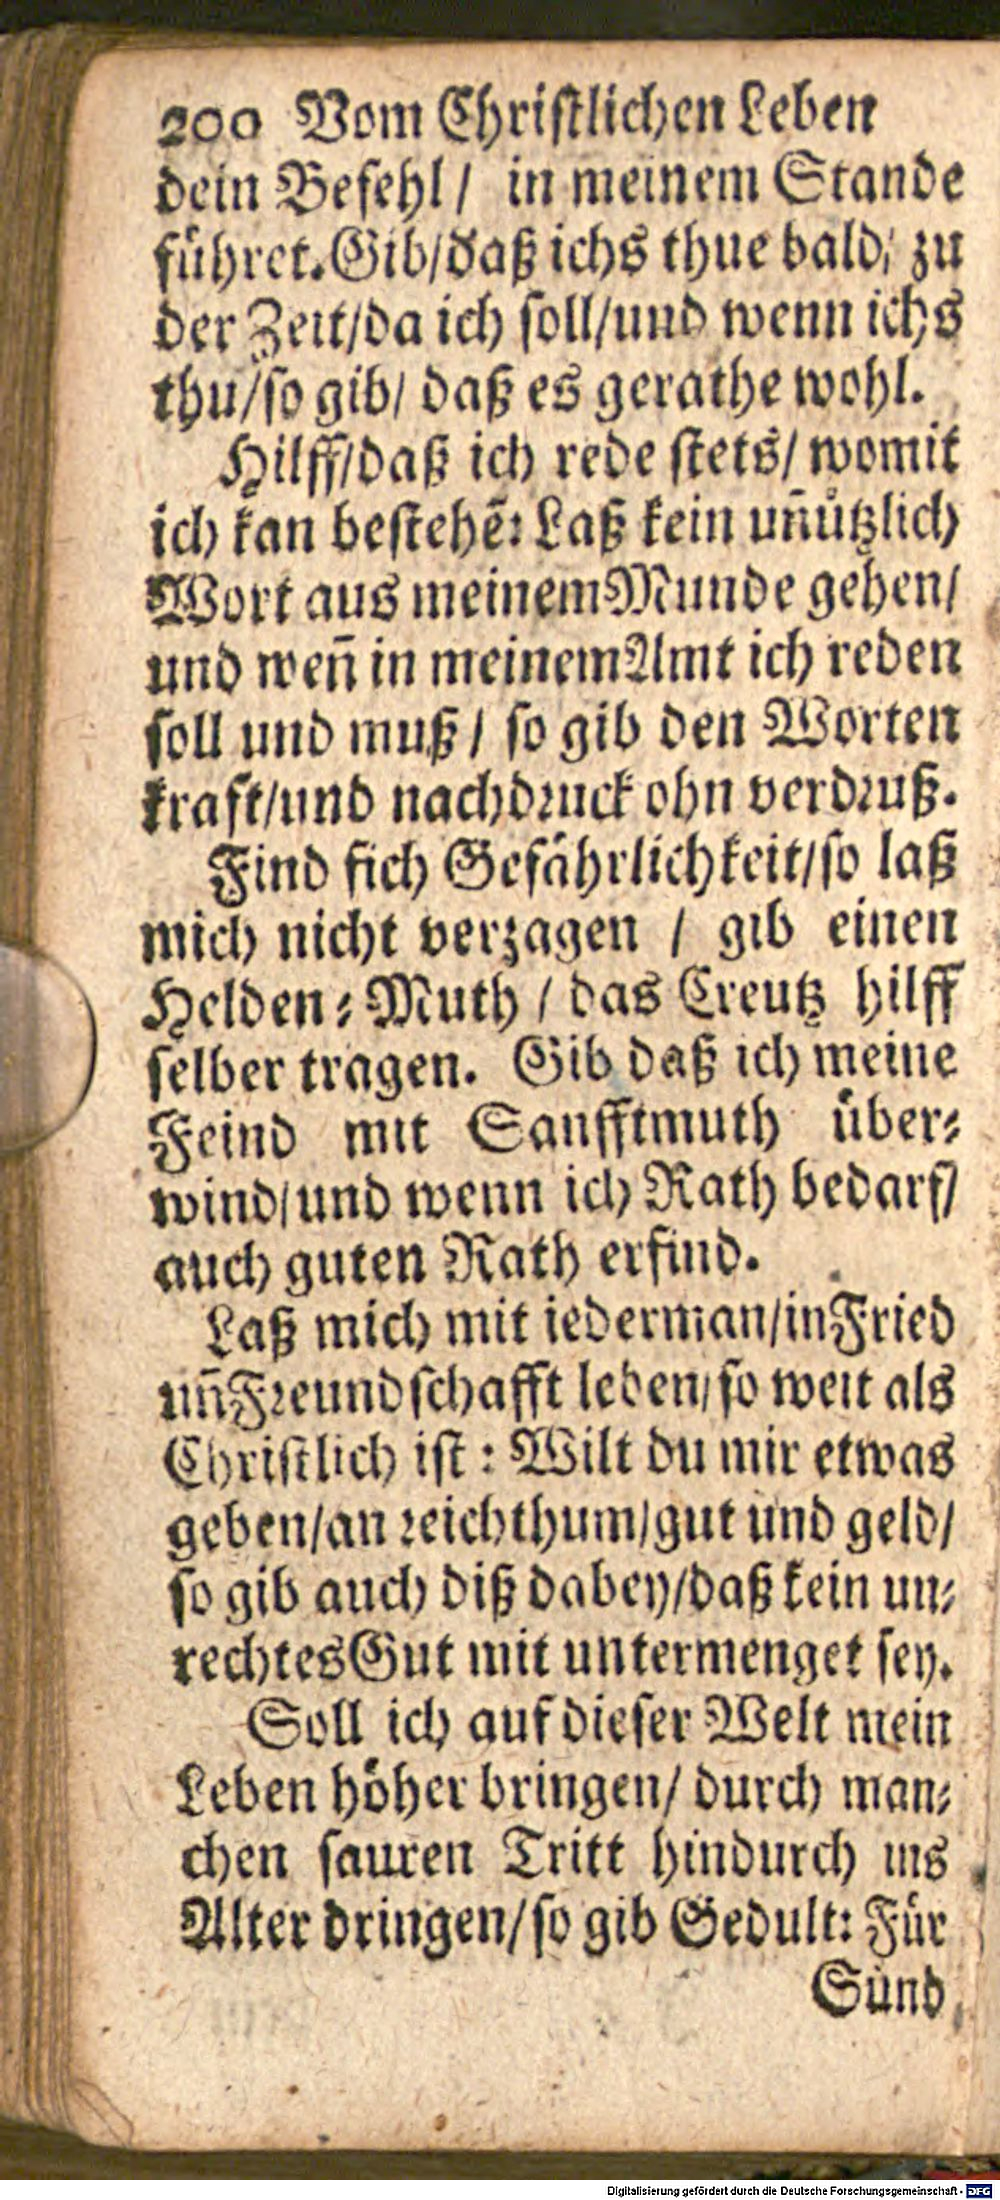 200 Vom Christlichen Leben
dein Befehl / in meinem Stande
führet. Gib/daß ichs thue bald/ zu
der Zeit/da ich soll/und wenn ichs
thu/so gib/ daß es gerathe wohl.
Hilff/daß ich rede stets/ womit
ich kan bestehẽ: Laß kein uñützlich
Wort aus meinem Munde gehen/
und weñ in meinem Amt ich reden
soll und muß / so gib den Worten
kraft/und nachdruck ohn verdruß.
Find sich Gefährlichkeit/so laß
mich nicht verzagen / gib einen
Helden-Muth / das Creutz hilff
selber tragen. Gib daß ich meine
Feind mit Sanfftmuth über-
wind/und wenn ich Rath bedarf/
auch guten Rath erfind.
Laß mich mit iederman/in Fried
uñ Freundschafft leben/so weit als
Christlich ist : Wilt du mir etwas
geben/an reichthum/gut und geld/
so gib auch diß dabey/daß kein un-
rechtes Gut mit untermenget sey.
Soll ich auf dieser Welt mein
Leben höher bringen/ durch man-
chen sauren Tritt hindurch ins
Alter dringen/so gib Gedult: Für
Sünd
Digitalisierung gefördert durch die Deutsche Forschungsgemeinschaft - DFG